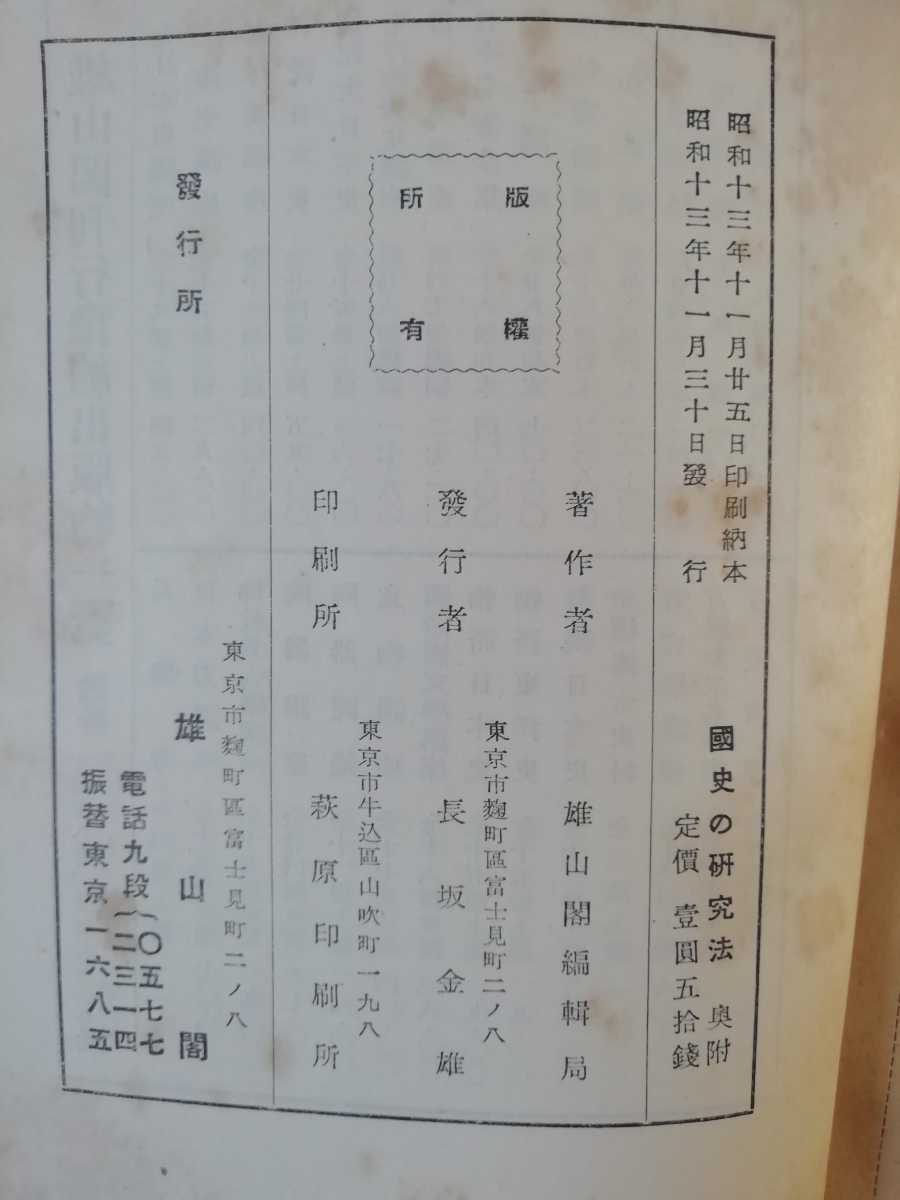 昭和十三年十一月廿五日印刷納本
昭和十三年十一月三十日發行
國史の研究法 奥附
定價 壹圓五拾錢
版權
所有
著作者 雄山閣編輯局
東京市麴町區富士見町二ノ八
發行者 長坂金雄
東京市牛込區山吹町一九八
印刷所 萩原印刷所
發行所
東京市麴町區富士見町二ノ八
雄山閣
電話九段(〇五七七
二三一四
振替東京一六八五